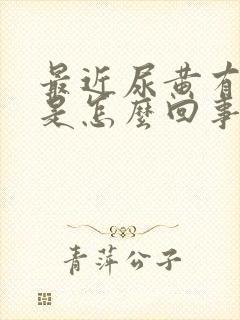 最近尿黄有
是怎麼回事
青萍公子